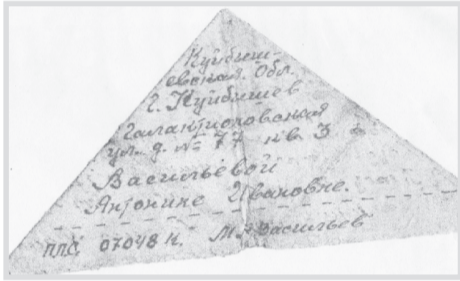 Куйбыш-
евская. Обл.
г. Куйбышев
Галактионовская
ул. д. № 77 кв. 3
Васильевой
Антонине Ивановне.
ППС 07048 Н. М. Васильев